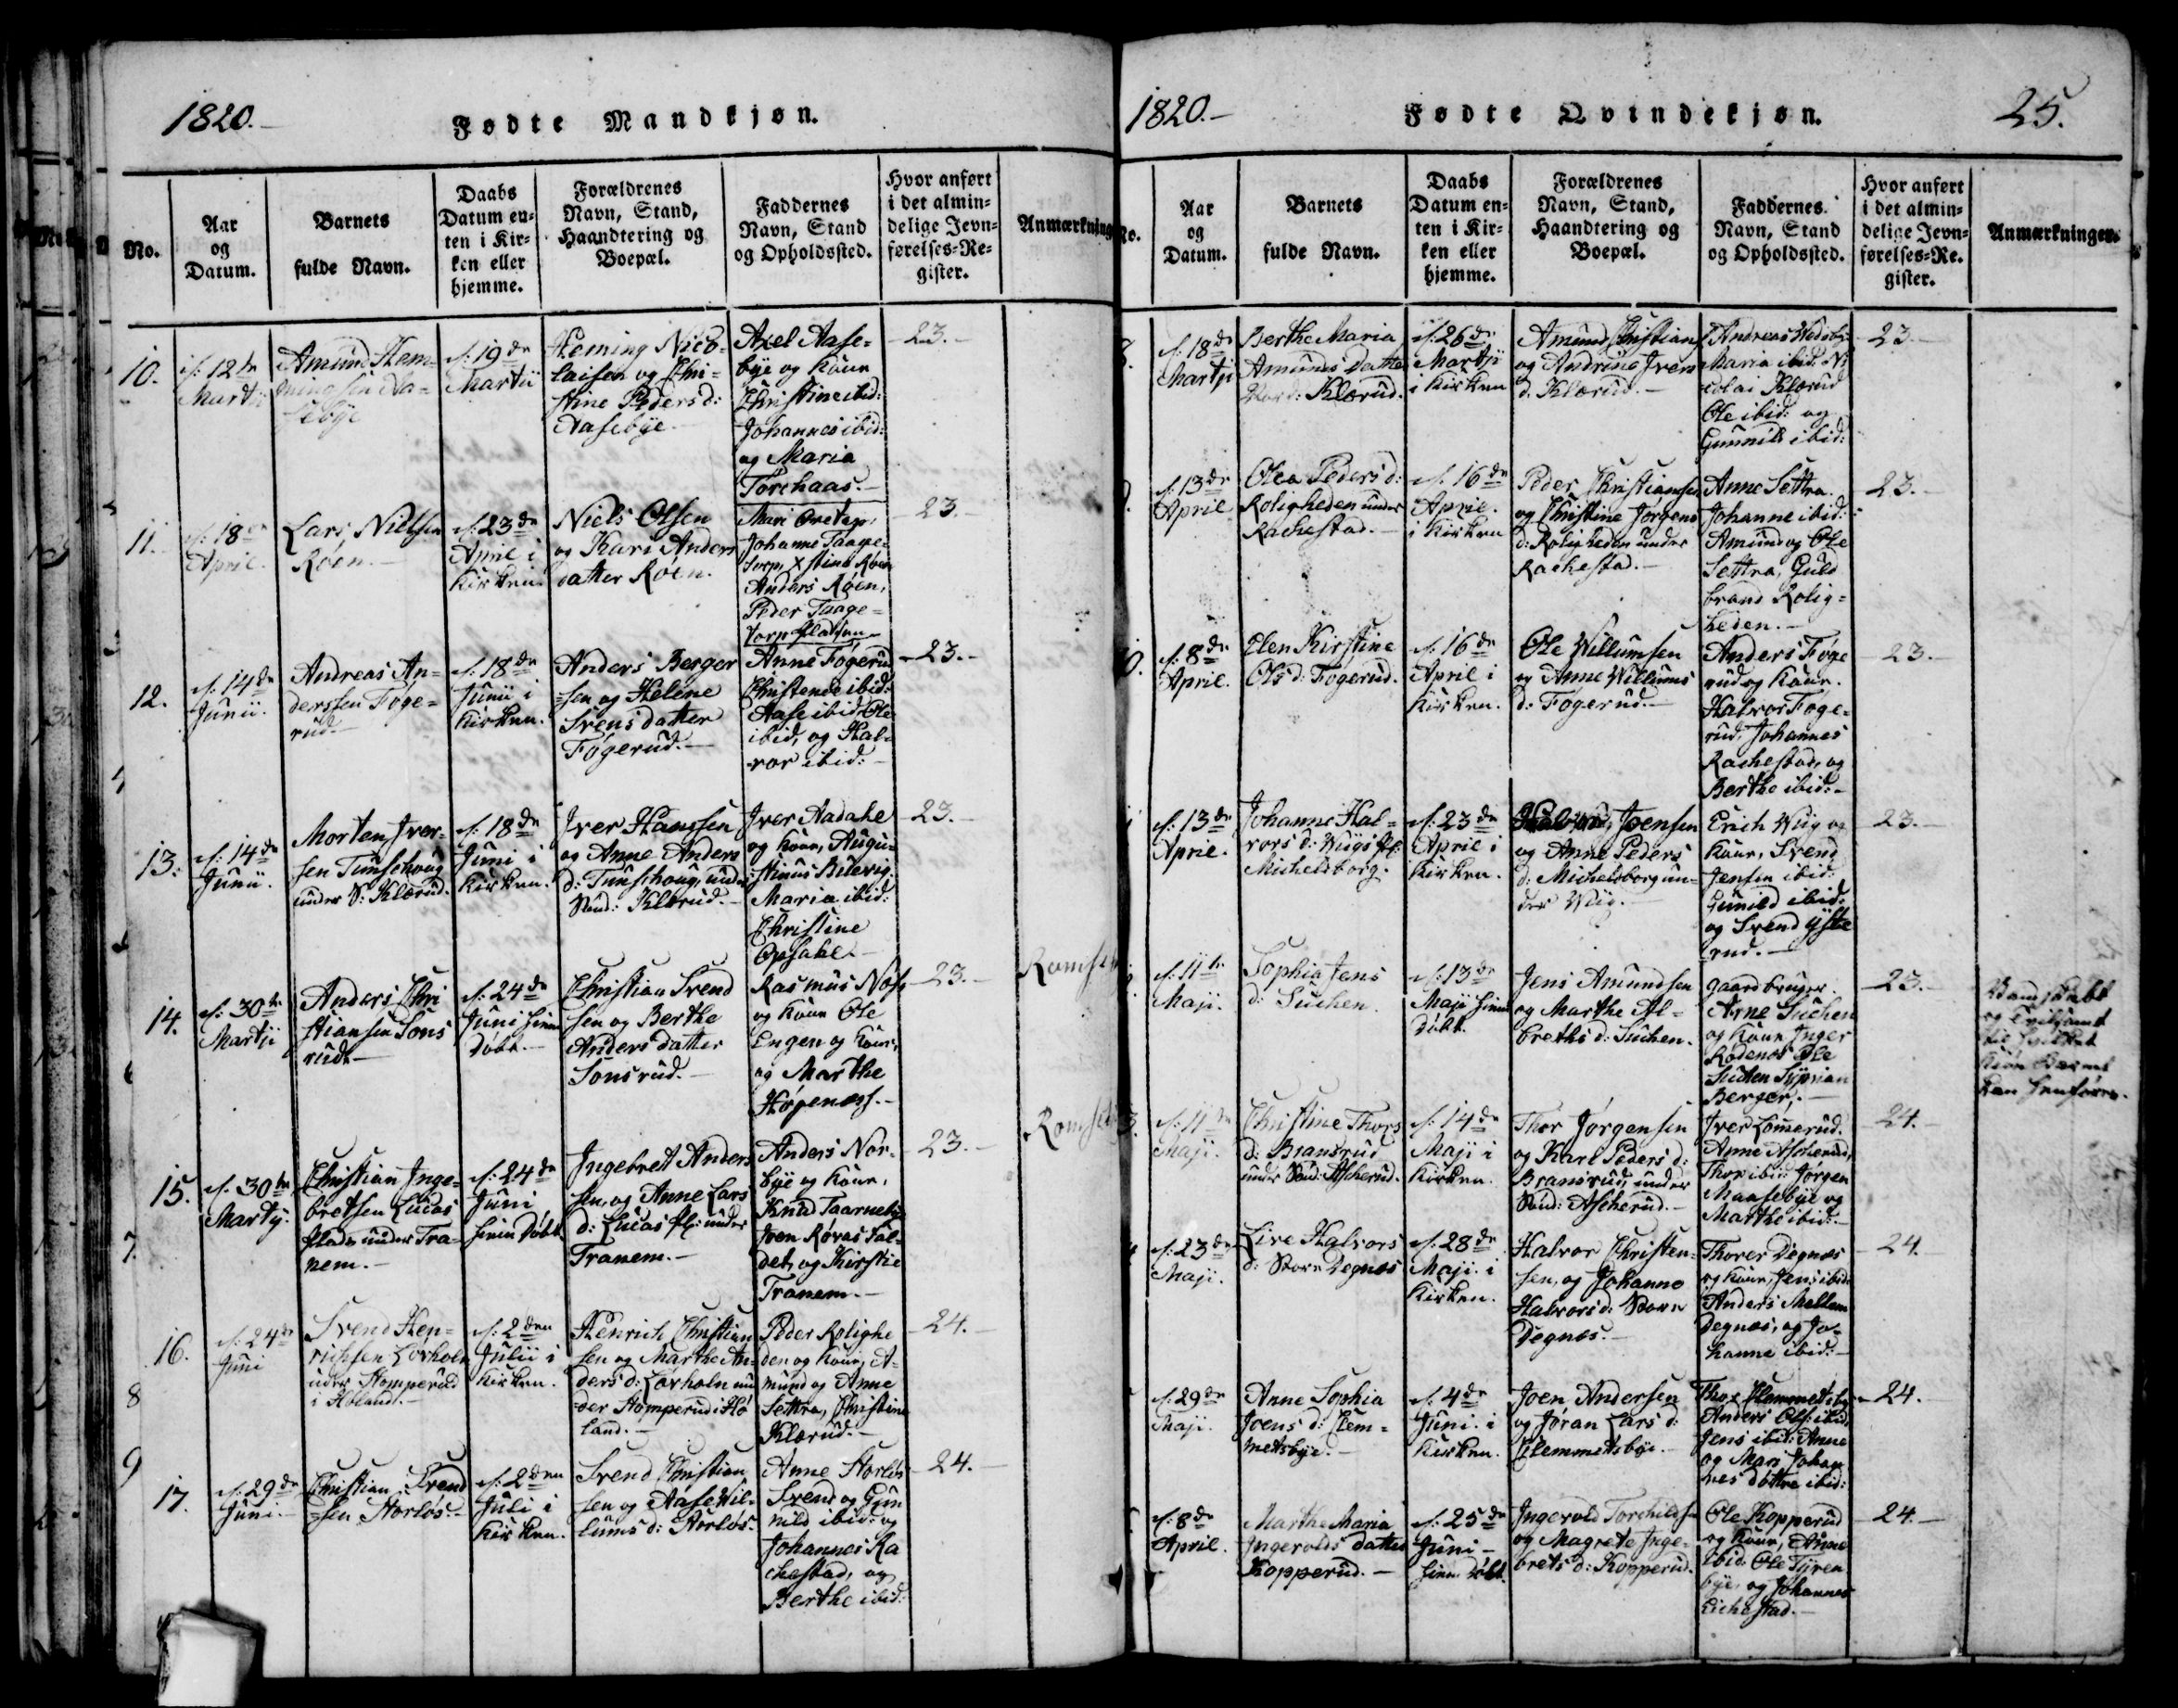 1820.
Fødte Mandkjøn.
No.
Aar
og
Datum.
Barnets
fulde Navn.
Daabs
Datum en-
ten i Kir-
ken eller
hjemme.
Forældrenes
Navn, Stand,
Haandtering og
Boepæl.
Faddernes
Navn, Stand
og Opholdssted.
Hvor anført
i det almin-
delige Jevn-
førelses-Re-
gister.
Anmærkning
10.
d: 12te
Martii
Amund Hem-
ming sen Aa-
sebye
d: 19de
Martii
Heming Nico-
laisen og Chri-
stine Peders d:
Aasebye.
Axel Aase-
bye og Kone
Christine ibid:
Johannes ibid:
og Maria
Torchaas.
23.
11.
d: 18de
April.
Lars Nielsen
Røen.
d: 23de
April i
Kirken.
Niels Olsen
og Kari Anders
datter Roen.
Mari
Johanne Taage-
torp,
Anders Røen,
Peder Taage-
torp
23.
12.
d: 14de
Junii.
Andreas An-
dersen Føge-
rud.
d: 18de
Junii i
Kirken.
Anders Berger
sen og Helene
Svens datter
Føgerud.
Anne Føgerud
Christence ibid:
Aase ibid, Ole
ibid, og Hal-
vor ibid:
23.
13.
d: 14de
Junii.
Morten Iver-
sen Tunschoug
under S: Klærud.
d: 18de
Juni i
Kirken.
Iver Hanssen
og Anne Anders
d: Tunschoug, under
Sønd: Klærud.
Iver Aadahl
og Kone, Augu-
stinus
Maria ibid:
Christine
Opsahl.
23.
14.
d: 30te
Martii
Anders Chri
stiansen Sons
rud.
d: 24de
Juni hiem
døbt.
Christian Svend
sen og Berthe
Anders datter
Sonsrud.
Rasmus Næs
og Kone Ole
Engen og Kone,
og Marthe
Høgenæss.
23.
15.
d: 30te
Marty.
Christian Inge-
bretsen Lucas
plads under Tra-
nem.
d: 24de
Juni
hiem døbt
Ingebret Anders
sen, og Anne Lars
d: Lucas pl: under
Tranem.
Anders Nor-
bye og Kone,
Knud Taarneby
Joen
det, og Kirstie
Tranem.
23.
16.
d: 24de
Juni
Svend Hen-
richsen Løvholn
under Homperud
i Høland.
d: 2den
Julii i
Kirken.
Henrich Christian
sen og Marthe An-
ders d: Løvholn un
der Homperud i Hø
land.
Peder Rolighe
den og Kone, A-
mund og Anne
Settra, Christine
Klærud.
24.
17.
d: 29de
Juni.
Christian Svend
sen Horløs.
d: 2den
Juli i
Kirken.
Svend Christian
sen og Aase Wil-
lums d: Horløs.
Anne Horløs
Svend og Gun
nild ibid: og
Johannes Ra
chestad, og
Berthe ibid:
24.
1820.
Fødte Qvindekjøn.
25.
No.
Aar
og
Datum.
Barnets
fulde Navn.
Daabs
Datum en-
ten i Kir-
ken eller
hjemme.
Forældrenes
Navn, Stand,
Haandtering og
Boepæl.
Faddernes
Navn, Stand
og Opholdssted.
Hvor anført
i det almin-
delige Jevn-
førelses-Re-
gister.
Anmærkninger.
d: 18de
Martii
Berthe Maria
Amunds Datter
Nord: Klærud.
d: 26de
Martii
i Kirken
Amund Christian
og Andrine Ivers
d. Klærud.
Andreas
Maria ibid: Ni
colai Klærud
Ole ibid: og
Gunnild ibid:
23.
d: 13de
April
Olea Peders d:
Roligheden under
Rachestad.
d: 16de
April.
i Kirken
Peder Christiansen
og Christine Jørgens
d: Roligheden under
Rachestad.
Anne Settra.
Johanne ibid:
Amund og Ole
Settra, Guld
brand Rolig-
heden.
23.
d: 8de
April.
Elen Kirstine
Ols d: Føgerud.
d: 16de
April i
Kirken.
Ole Willumsen
og Anne Willums
d: Føgerud.
Anders Føge
rud og Kone.
Halvor Føge-
rud, Johannes
Rachestad, og
Berthe ibid:
23.
d: 13de
April.
Johanne Hal-
vors d: Wiigs pl:
Michelsborg.
d: 23de
April i
Kirken.
Halvor Joensen
og Anne Peders
d: Michelsborg un-
der Wiig.
Erich Wiig og
Kone, Svend
Jensen ibid:
Gunild ibid:
og Svend Yste
rud.
23.
d: 11te
Maji.
Sophia Jens
d: Suchen.
d: 13de
Maji hiem
døbt.
Jens Amundsen
og Marthe Al-
breths d: Suchen.
Gaardbruger
Arne Suchen
og Kone Inger
Rødenæs Ole
Suchen Syprian
Berger.
23.
d: 11te
Maji.
Christine Thors
d: Bransrud
under Sønd: Ascherud.
d: 14de
Maji i
Kirken.
Thor Jørgensen
og Kari Peders d:
Bransrud, under
Sønd: Ascherud.
Iver Lomerud.
Anne Ascherud,
Thor ibid: Jørgen
Haasebye og
Marthe ibid:
24.
d: 23de
Maji.
Live Halvors
d: Store Degnæs
d: 28de
Maji. i
Kirken.
Halvor Christen-
sen, og Johanne
Halvors d: Store
Degnæs.
Thorer Degnæs
og Kone, Jens ibid:
Anders Mellem
Degnæs, og Jo-
hanne ibid:
24.
d: 29de
Maji.
Anne Sophia
Joens d: Clem-
metsbye.
d: 4de
Juni. i
Kirken.
Joen Andersen
og Jøran Lars d:
Clemmetsbye.
Thor Clemmetsby
Anders Ols: ibid:
Jens ibid: Anne
og Mari Johan
nes døttre ibid:
24.
d: 8de
April.
Marthe Maria
Ingevolds datter
Kopperud.
d: 25de
Juni
hiem døbt.
Ingevold Torchildsen
og Magrete Inge-
brets d: Kopperud.
Ole Kopperud
og Kone, Anne
ibid: Ole Tyren
bye, og Johannes
Lichestad.
24.